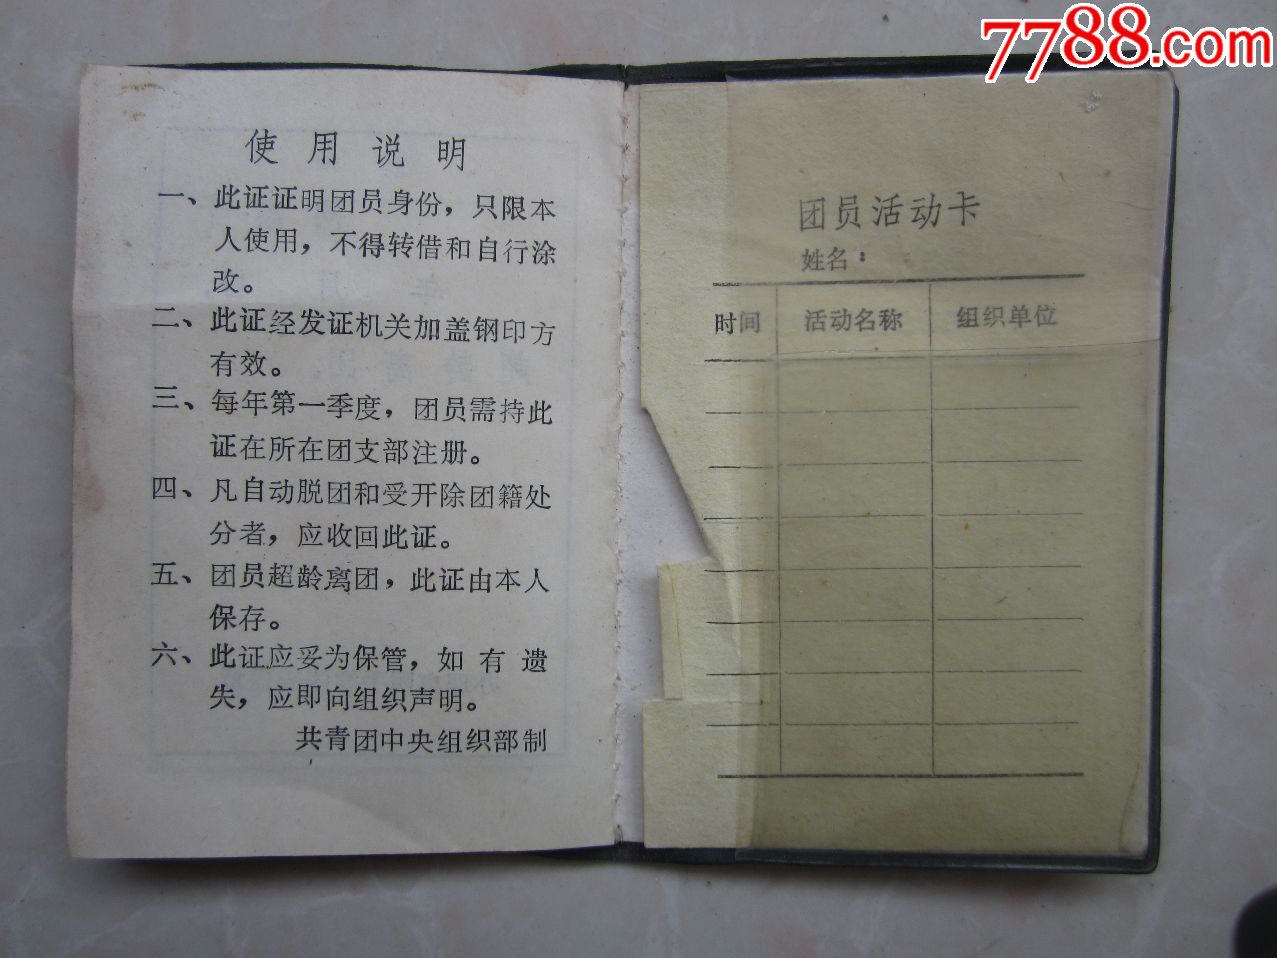 7788.com
使用说明
一、此证证明团员身份，只限本
人使用，不得转借和自行涂
改。
二、此证经发证机关加盖钢印方
有效。
三、每年第一季度，团员需持此
证在所在团支部注册。
四、凡自动脱团和受开除团籍处
分者，应收回此证。
五、团员超龄离团，此证由本人
保存。
六、此证应妥为保管，如有遗
失，应即向组织声明。
共青团中央组织部制
团员活动卡
姓名：
时间 活动名称 组织单位